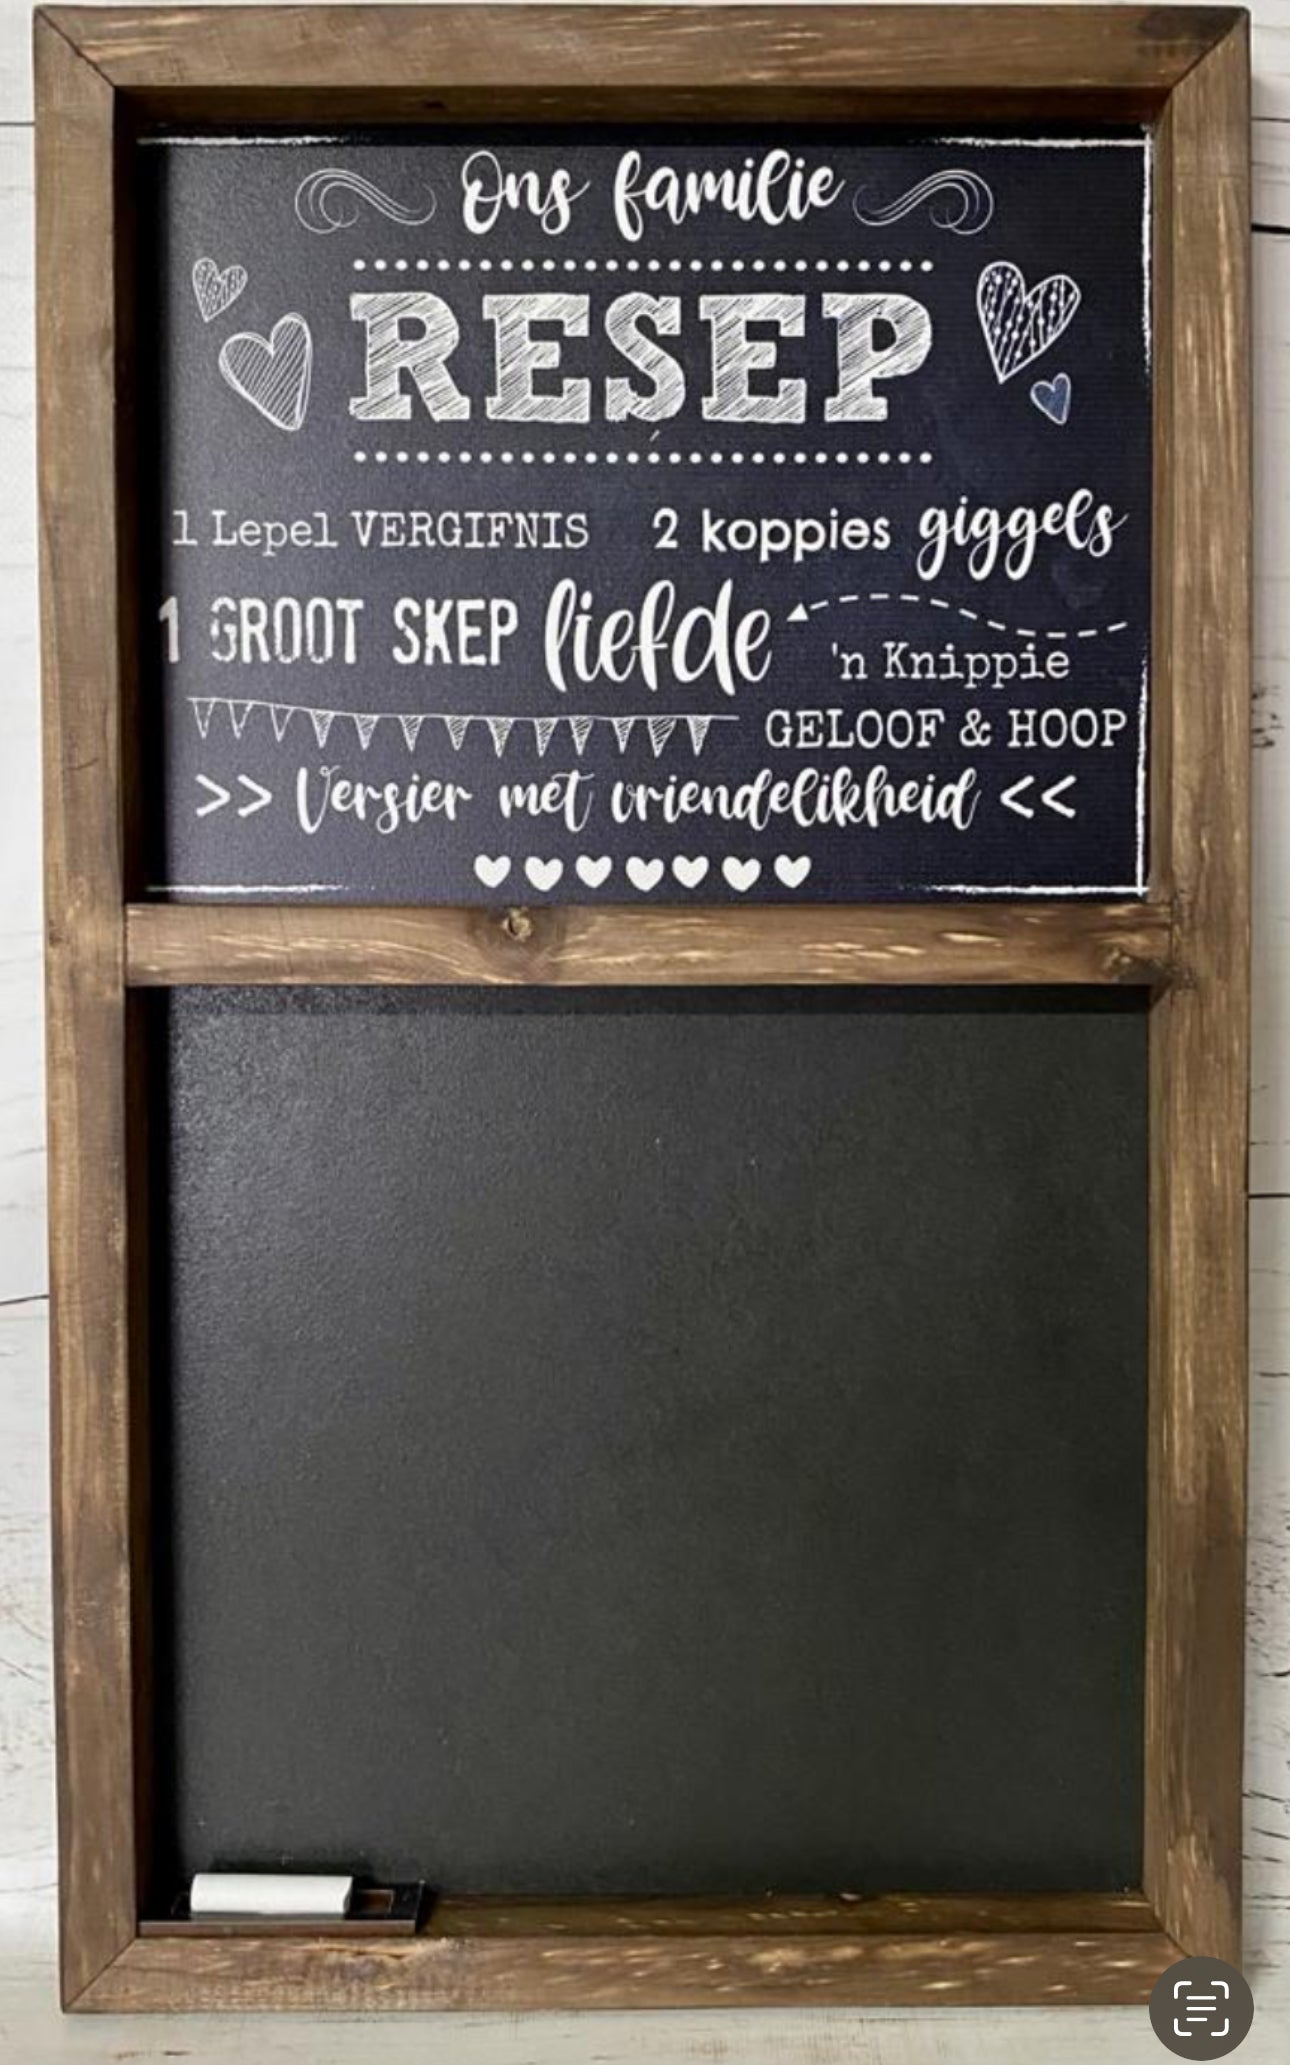 Ons familie
RESEP
1 Lepel VERGIFNIS 2 koppies giggels
1 GROOT SKEP liefde
'n Knippie
GELOOF & HOOP
>> Versier met vriendelikheid <<